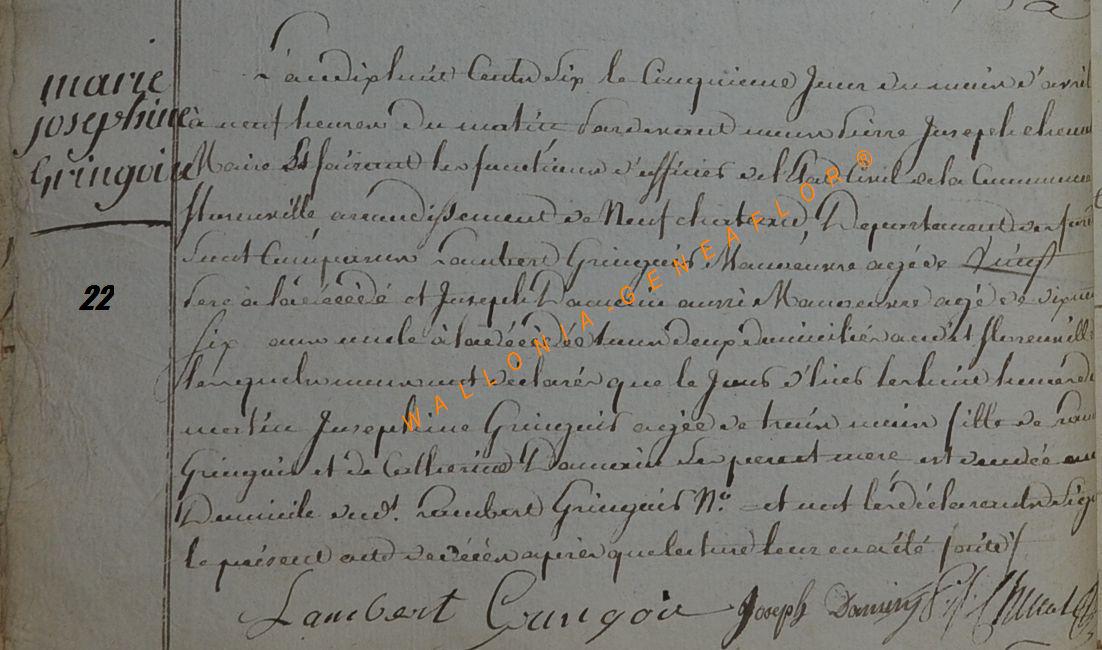 marie
josephine
Gringoire
22
L'an dix huit Cents Six le Cinquieme Jour du mois d'avril
à neuf heures du matin Pardevant nous Pierre Joseph
Maire Et faisant les fonctions d'officier de l'Etat Civil de la Commune
florenville arrondissement de Neufchateau, Departement des forêts
Sont Comparus Lambert Gringoir Manoeuvre agé de
Pere à la décédé et Joseph aussi Manoeuvre agé de
six ans oncle à la décédée tous deux domiciliés audit florenville
lesquels nous ont déclarés que le Jour d'hier les huit heures du
matin Josephine Gringoir agée de trois mois fille de
Gringoir et de Catherine ses pere et mere est decedée au
Domicile dudt. Lambert Gringoir N.º et ont les déclarants signé
le présent acte de décès après que lecture leur en a été faite
Lambert Gringoir Joseph
WALLONIA-GENEAFLOR ®